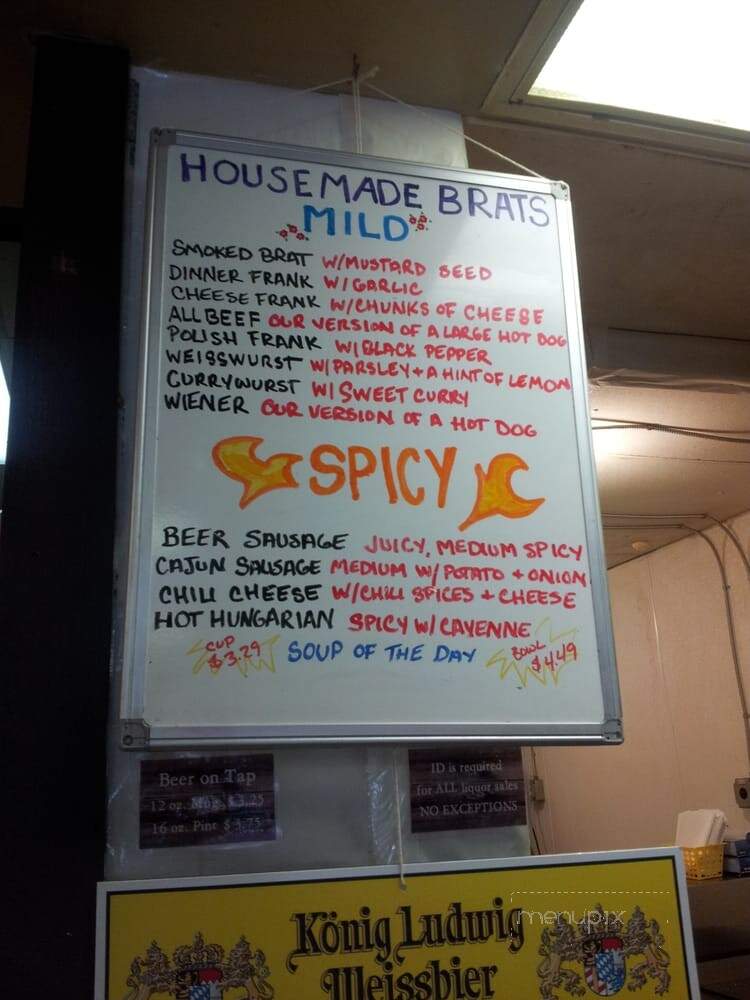 HOUSEMADE BRATS
MILD
SMOKED BRAT W/MUSTARD SEED
DINNER FRANK W/GARLIC
CHEESE FRANK W/CHUNKS OF CHEESE
ALL BEEF OUR VERSION OF A LARGE HOT DOG
POLISH FRANK W/BLACK PEPPER
WEISSWURST W/PARSLEY + A HINT OF LEMON
CURRYWURST W/SWEET CURRY
WIENER OUR VERSION OF A HOT DOG
SPICY
BEER SAUSAGE JUICY, MEDIUM SPICY
CAJUN SAUSAGE MEDIUM W/POTATO + ONION
CHILI CHEESE W/CHILI SPICES + CHEESE
HOT HUNGARIAN SPICY W/CAYENNE
CUP $3.29 SOUP OF THE DAY BOWL $4.49
Beer on Tap
12 oz. Mug $3.25
16 oz. Pint $3.75
ID is required
for ALL liquor sales
NO EXCEPTIONS
König Ludwig
Weissbier
menupix